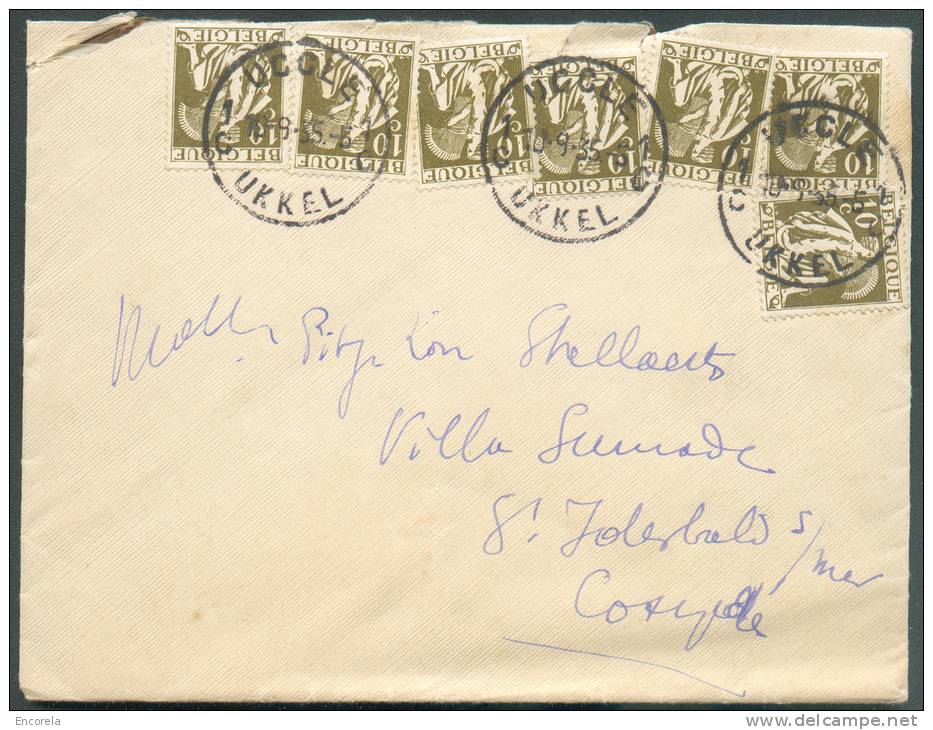 BELGIE BELGIE BELGIE BELGIE BELGIE BELGIE
10 c 10 c 10 c 10 c 10 c 10
BELGIQUE BELGIQUE BELGIQUE BELGIQUE BELGIQUE
UCCLE UCCLE UCCLE
1 C -9-35- 1 C 1 C -9-35 1 C 1 C
UKKEL UKKEL UKKEL
BELGIQUE
10 c
BELGIE
Stellaerts
Villa
St Idesbald s/mer
Coxyde
Encorela
www.delcampe.net